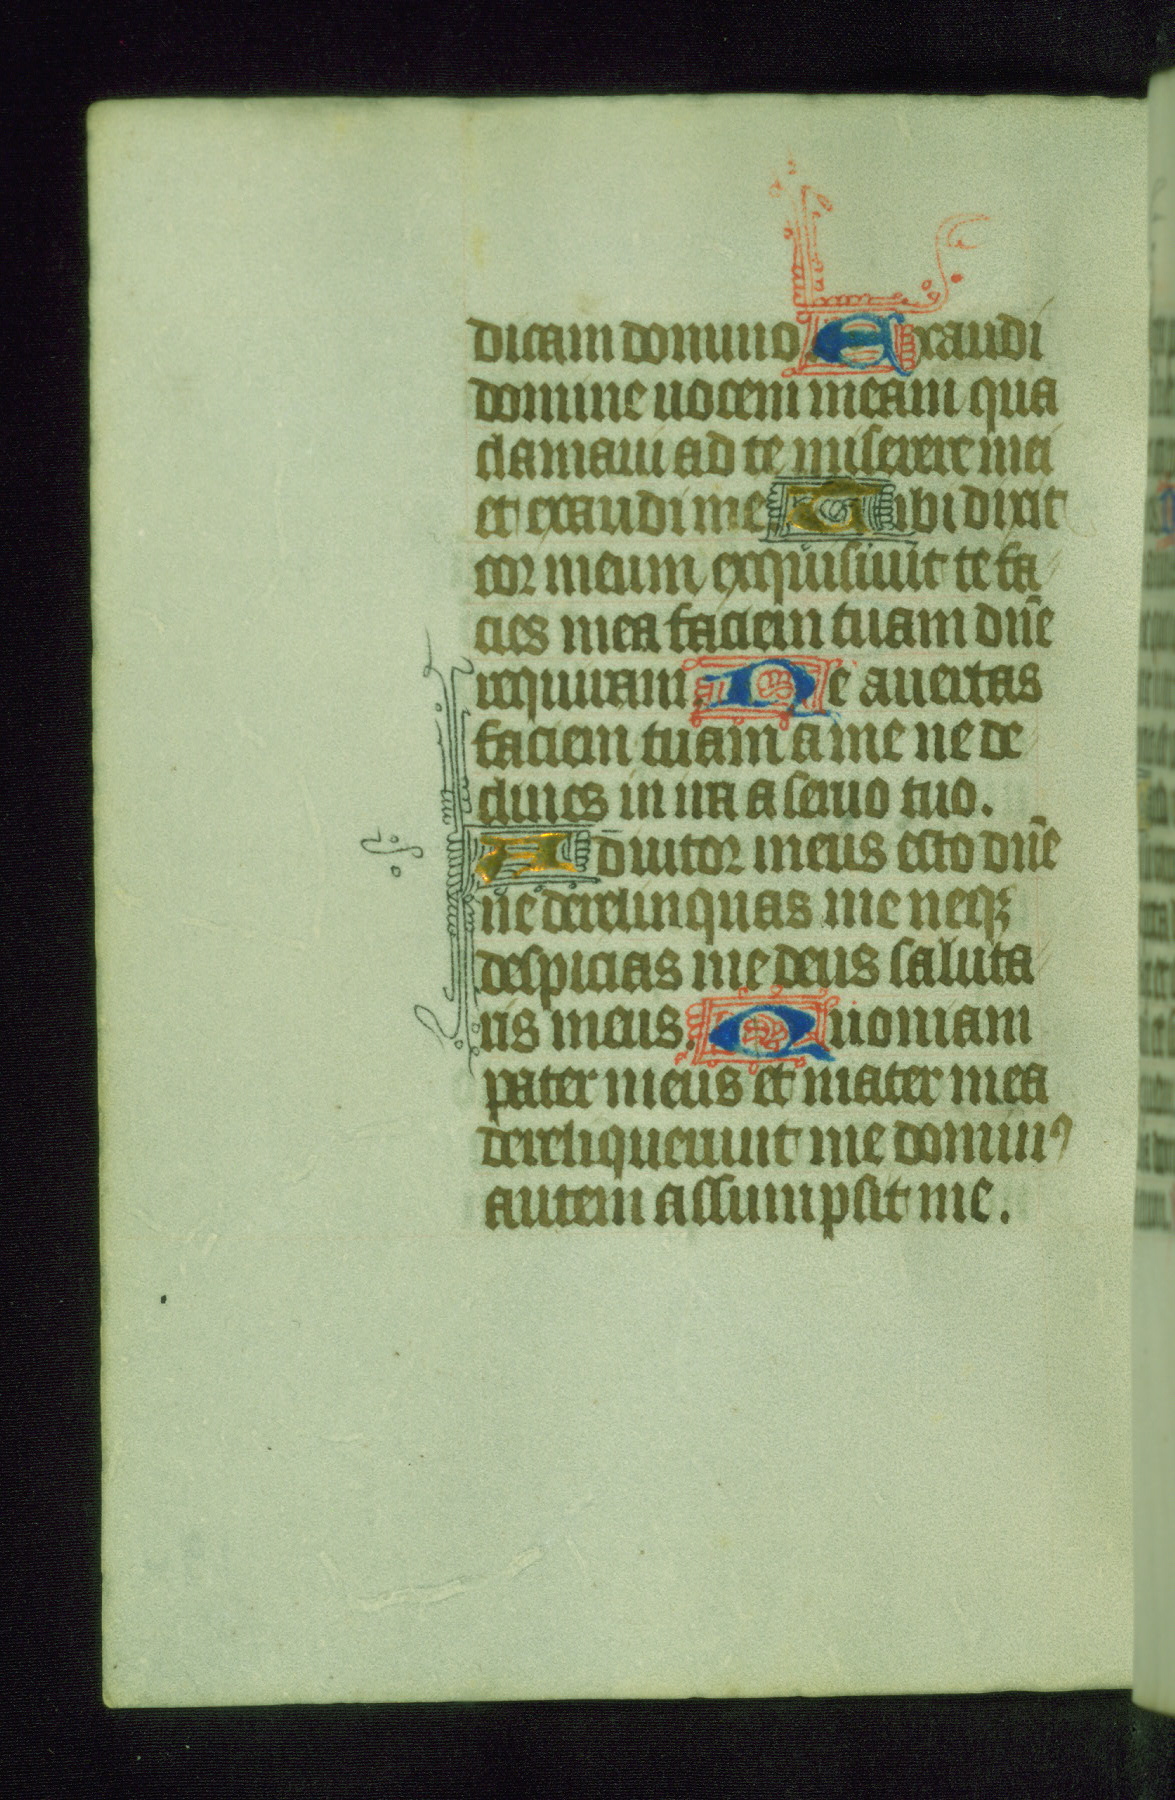 dicam domino. Exaudi
domine uocem meam qua
clamaui ad te miserere mei
et exaudi me. Tibi dixit
cor meum exquisiuit te fa
cies mea faciem tuam dn̄e
requiram. Ne auertas
faciem tuam a me ne de
clines in ira a seruo tuo.
Adiutor meus esto dn̄e
ne derelinquas me neqꝫ
despicias me deus saluta
ris meus. Quoniam
pater meus et mater mea
dereliquerunt me dominꝰ
autem assumpsit me.